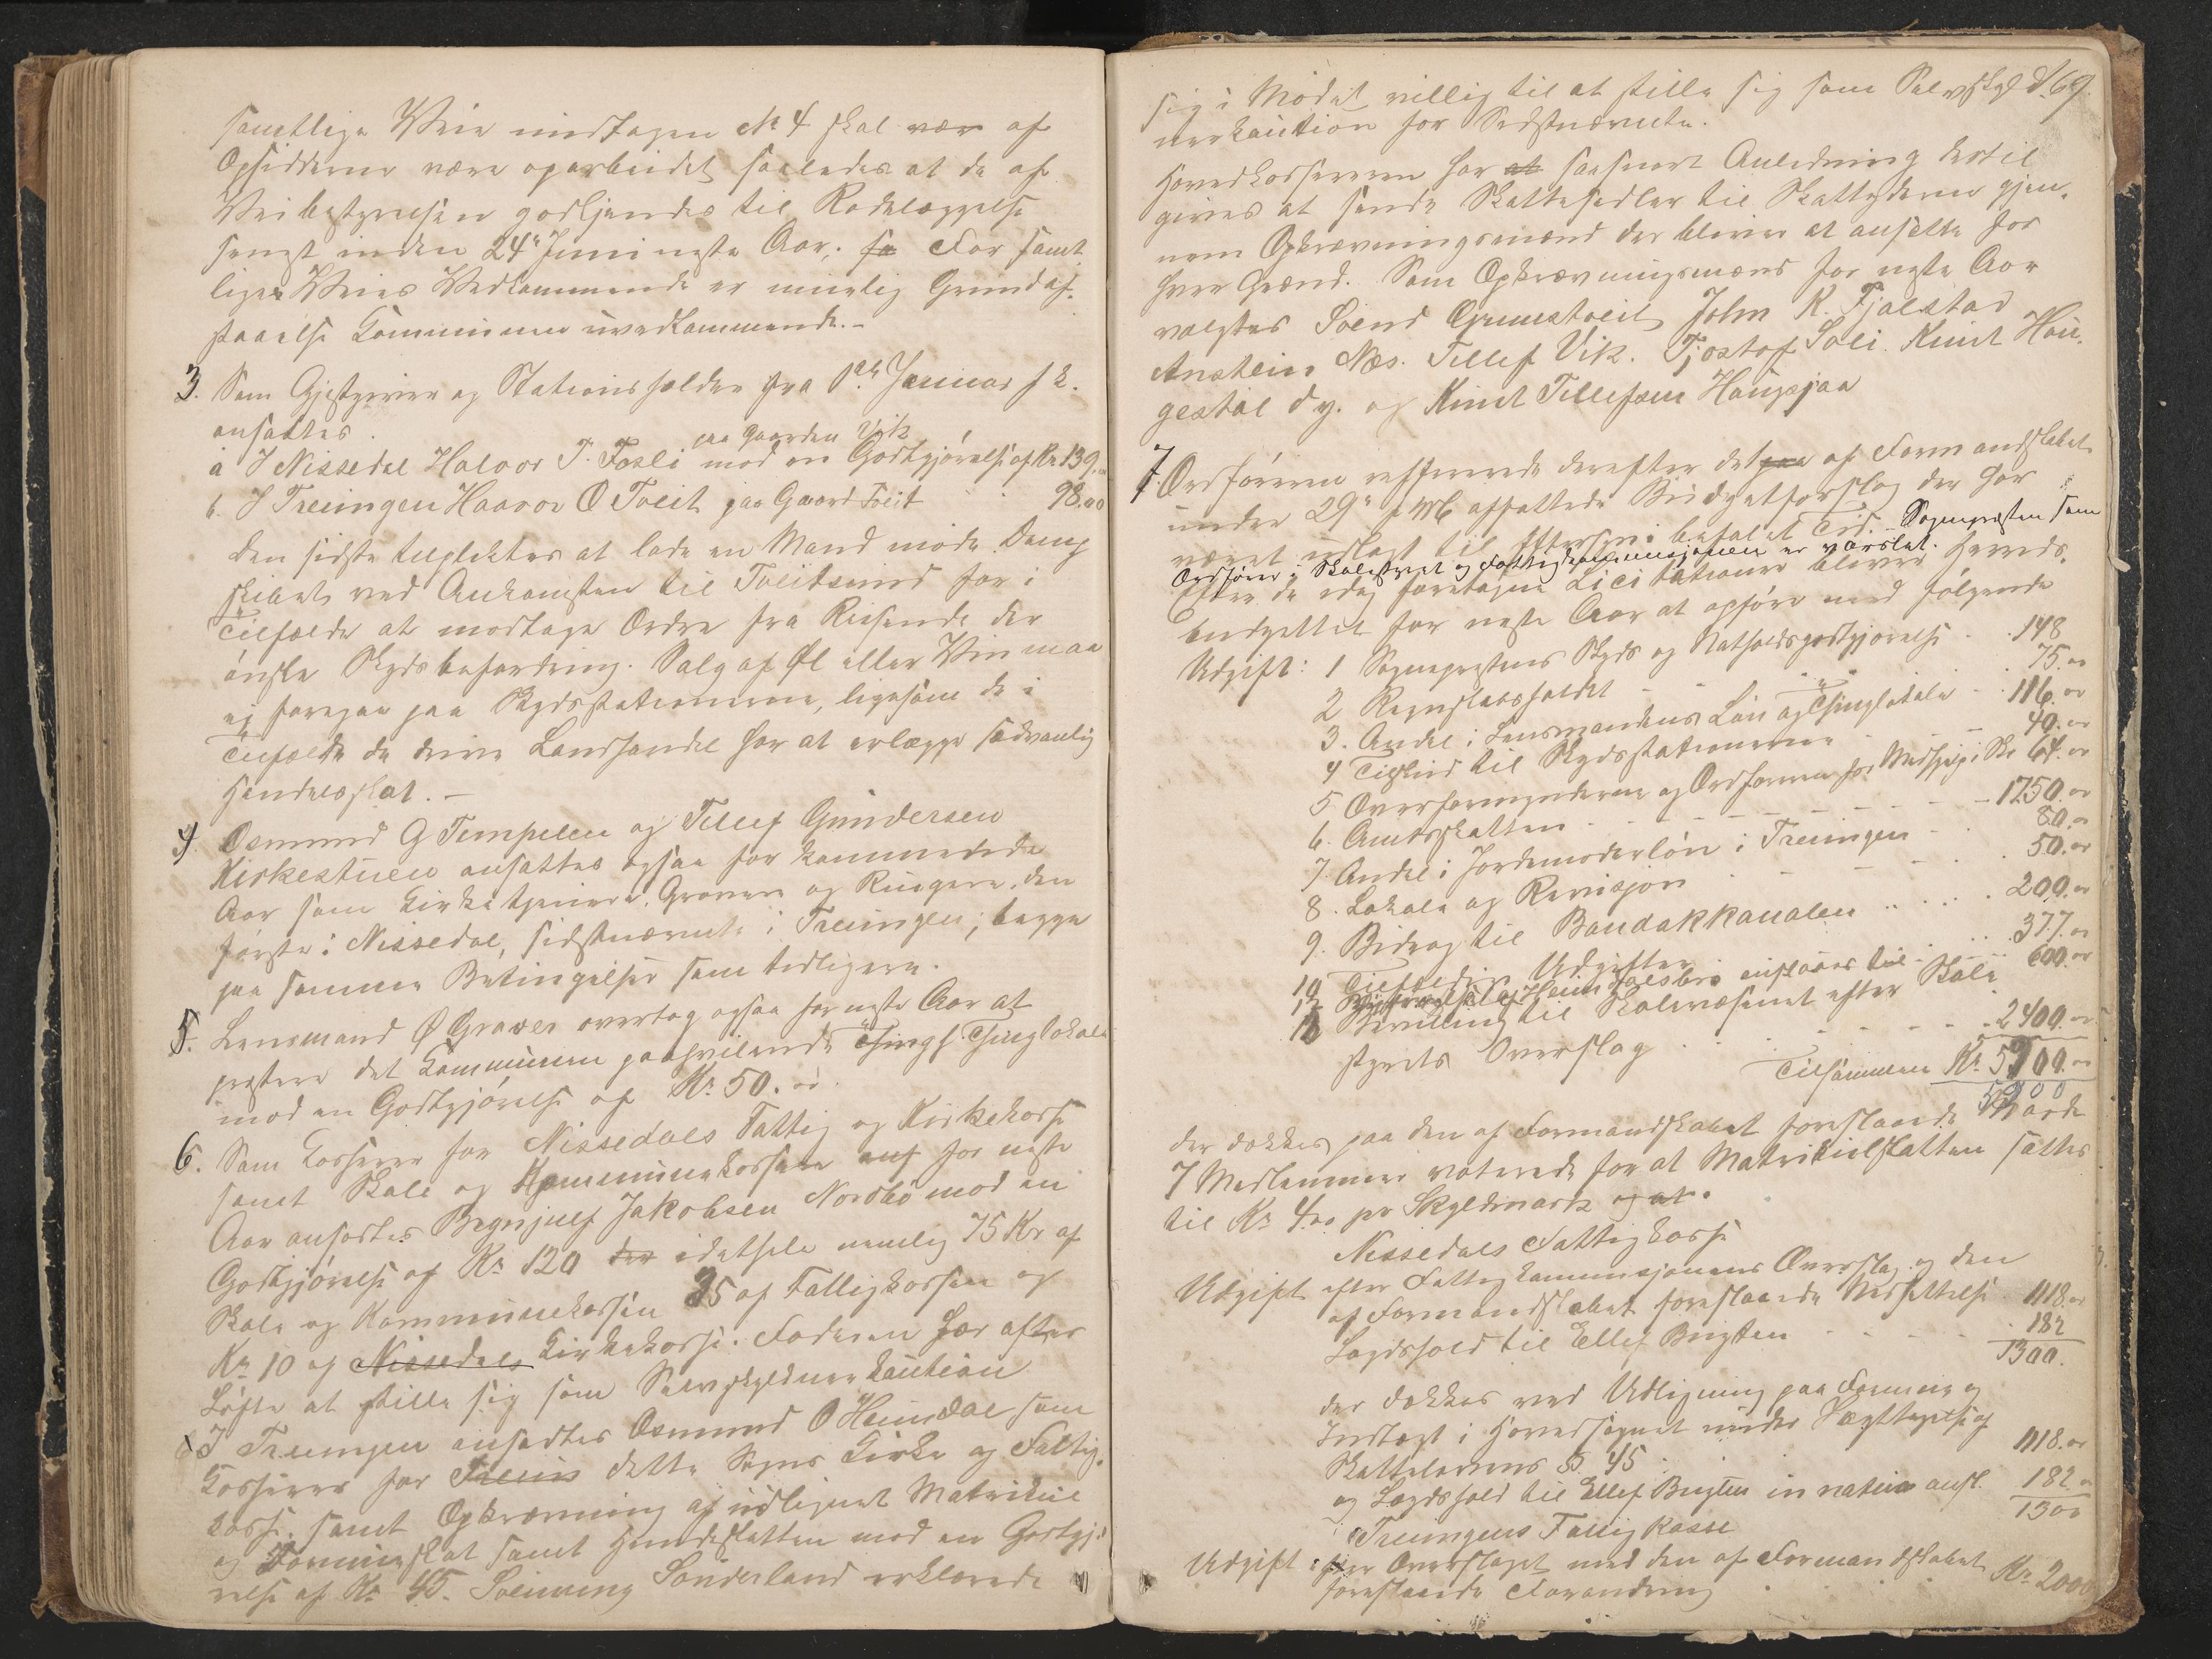 samtlige Veie undtagen No 4 skal vær af
Opsidderne være oparbeidet saaledes at de af
Veibestyrelsen godkjendes til Rodelæggelse
senest inden 24de Juni neste Aar. fo For samt
lige Veies Vedkommende er mulig Grundaf-
staaelse Kommunen uvedkommende.-
3. Som Gjestgiver og Stationsholder fra 1ste Januar f k.
ansattes.
paa Gaarden Vik
a I Nissedal Halvor J. Fosli mod en Godtgjørelse af Kr 139.
b. I Treungen Haavor O Tveit paa Gaard Tveit 98.00
den sidste tilpligtes at lade en Mand møde Damp
skibet ved Ankomsten til Tveitsund for i
Tilfælde at modtage Ordre fra Reisende der
ønske Skydsbefordring. Salg af Øl eller Vin maa
ei foregaa paa Skydsstationerne, ligesom de i
Tilfælde de drive Landhandel har at erlægge sædvanlig
Handelsskat.-
4. Osmund G Tempelen og Tellef Gundersen
Kirkestuen ansattes ogsaa for kommende
Aar som Kirketjenere, Gravere og Ringere, den
første i Nissedal, sidstnævnte i Treungen; begge
paa samme Betingelser som tidligere.
5. Lensmand Ø Graver overtog ogsaa for neste Aar at
præstere det Kommunen paahvilende Things Thinglokale
mod en Godtgjørelse af Kr. 50.00.
6. Som Kasserer for Nissedals Fattig og Kirkekasse
samt Skole og Kommunekassen auf for neste
Aar ansattes Brynjulf Jakobsen Nordbø mod en
Godtgjørelse af Kr 120 der idethele nemlig 75 Kr af
Skole og Kommunekassen 35 af Fattigkassen og
Kr 10 af Nissedals Kirkekasse. Faderen har aftes
Løfte at stille sig som Selvskyldnerkaution
I Treungen ansattes Osmund O Heimdal som
Kasserer for Treun dette Sogns Kirke og Fattig-
kasse, samt Opkrævning af udlignet Matrikul
og Formueskat samt Hundeskatten mod en Godtgjø
relse af Kr 45. Sveinung Sønderland erklærede
69.
sig i Mødet villig til at stille sig som Selvskyld
nerkaution for Sidstnævnte.
Hovedkassereren har at saasnart Anledning dertil
gives at sende Skattesedler til Skatteyderne gjen-
nem Opkrævningsmænd der bliver at ansætte for
hver Grænd. Som Opkrævningsmænd for neste Aar
valgtes Svend Grunstveit, John K. Fjalestad
Anstein Næs. Tellef Vik. Tjostof Sali. Knut Hau-
gestøl d y. og Knut Tellefsen Haugsjaa
7. Ordføreren refererede derefter det paa af Formandskabet
under 29de f M affattede Budgetforslag der har
været udlagt til Eftersyn i befalet Tid. Sognepresten som
Ordfører i Skolestyret og Fattigkommisjonen er varslet.
Efter de idag foretagne Licitationer bliver Herreds-
budgettet for neste Aar at opføre med følgende
Udgift: 1 Sognepræstens Skyds og Natholdsgodtgjørelse . . 148
2 Regnskabsholdet - - . . 75.00
3. Andel i Lensmandens Løn og Thinglokale - . 116.00
4 Tilskud til Skydsstationerne - - 40.00
5 Overformynderne og Ordføreren for Medhjelp i Sk 64.00
6. Amtsskatten - - - - - 1250.00
7. Andel i Jordemoderløn i Treungen - . 80.00
8. Lokale og Revisjon - - - . . 50.00
9. Bidrag til Bandakkanalen . . . . 200.00
10 Tilfældige Udgifter . . . 377.00
11 Heimdalsbro anslaaes til . . . 600.00
12 Bevilling til Skolevæsenet efter Skole
styrets Overslag . . . - - - 2400.00
Tilsammen Kr. 5900.00
5900
der dækkes paa den af Formandskabet foreslaaede Maade
7 Medlemmer voterede for at Matrikulskatten sattes
til Kr 4.00 pr Skyldmark og at.
Nissedals Fattigkasse
Udgift efter Fattigkommisjonens Overslag og den
af Formandskabet foreslaaede Nedsættelse 1118.00
Lægdshold til Ellef Brugten - - - - 182
1300.
der dækkes ved Udligning paa Formue og
Indtægt i Hovedsognet under Iagttagelse af
Skattelovens § 45 1118.00
og Lægdshold til Ellef Brugten in natura ansl. 182.00
1300
Treungens Fattig Kasse
Udgift: for Overslaget med den af Formandskabet
foreslaaede Forandring . . Kr. 2000